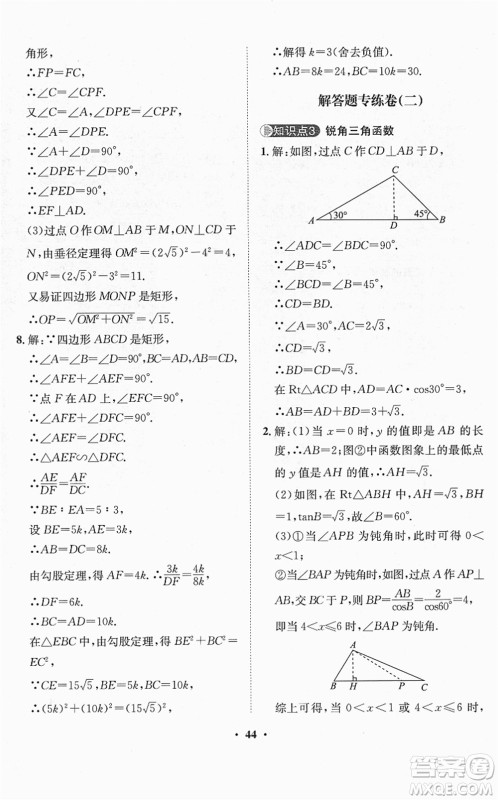 角形,
∴FP=FC.
又∵∠DPE=∠FPC,
∴∠A=∠DPE.
∵∠A+∠D=90°,
∴∠DPE+∠D=90°.
∴∠DEP=90°.
∴EF⊥AD.
(3)过点 O 作 OM⊥AB 于 M,ON⊥CD 于
N,由垂径定理得 OM²=(2√5)²-4²=4,
ON²=(2√5)²-3²=11.
又易证四边形 MONP 是矩形,
∴OP=√(OM²+ON²)=√15.
8. 解:∵四边形 ABCD 是矩形,
∴∠A=∠B=∠D=90°,
∴∠AFE+∠AEF=90°.
∵点 F 在 AD 上,∠EFC=90°,
∴∠AFE+∠DFC=90°.
∴∠AEF=∠DFC.
∴△AEF∽△DFC.
∴AE/DF=AF/DC.
∵BE∶EA=5∶3,
设 BE=5k,AE=3k.
∴AB=DC=8k.
由勾股定理,得 AF=4k,∴3k/DF=4k/8k.
∴DF=6k.
∴BC=AD=10k.
在△EBC 中,由勾股定理,得 BE²+BC²=
EC²,
∵CE=15√5,BE=5k,BC=10k,
∴(5k)²+(10k)²=(15√5)².
∴解得 k=3(舍去负值).
∴AB=8k=24,BC=10k=30.
解答题专练卷(二)
知识点3 锐角三角函数
1. 解:如图,过点 C 作 CD⊥AB 于 D,
C
30° 45°
A D B
∴∠ADC=∠BDC=90°.
∵∠B=45°,
∴∠BCD=∠B=45°,
∴CD=BD.
∵∠A=30°,AC=2√3,
∴CD=√3.
∴BD=CD=√3.
在 Rt△ACD 中,AD=AC·cos30°=3.
∴AB=AD+BD=3+√3.
2. 解:(1)当 x=0 时,y 的值即是 AB 的长
度,故 AB=2;图②中函数图象的最低点
的 y 值是 AH 的值,故 AH=√3.
(2)如图,在 Rt△ABH 中,AH=√3,BH=
1,tanB=AH/BH=√3,∴∠B=60°.
(3)①当∠APB 为钝角时,此时可得 0
<x<1;
②当∠BAP 为钝角时,过点 A 作 AP⊥
AB,交 BC 于点 P,则 BP=AB/cosB=2/cos60°=
4,即当 4<x≤6 时,∠BAP 为钝角.
A
B H P C
综上可得,当 0<x<1 或 4<x≤6 时,
44